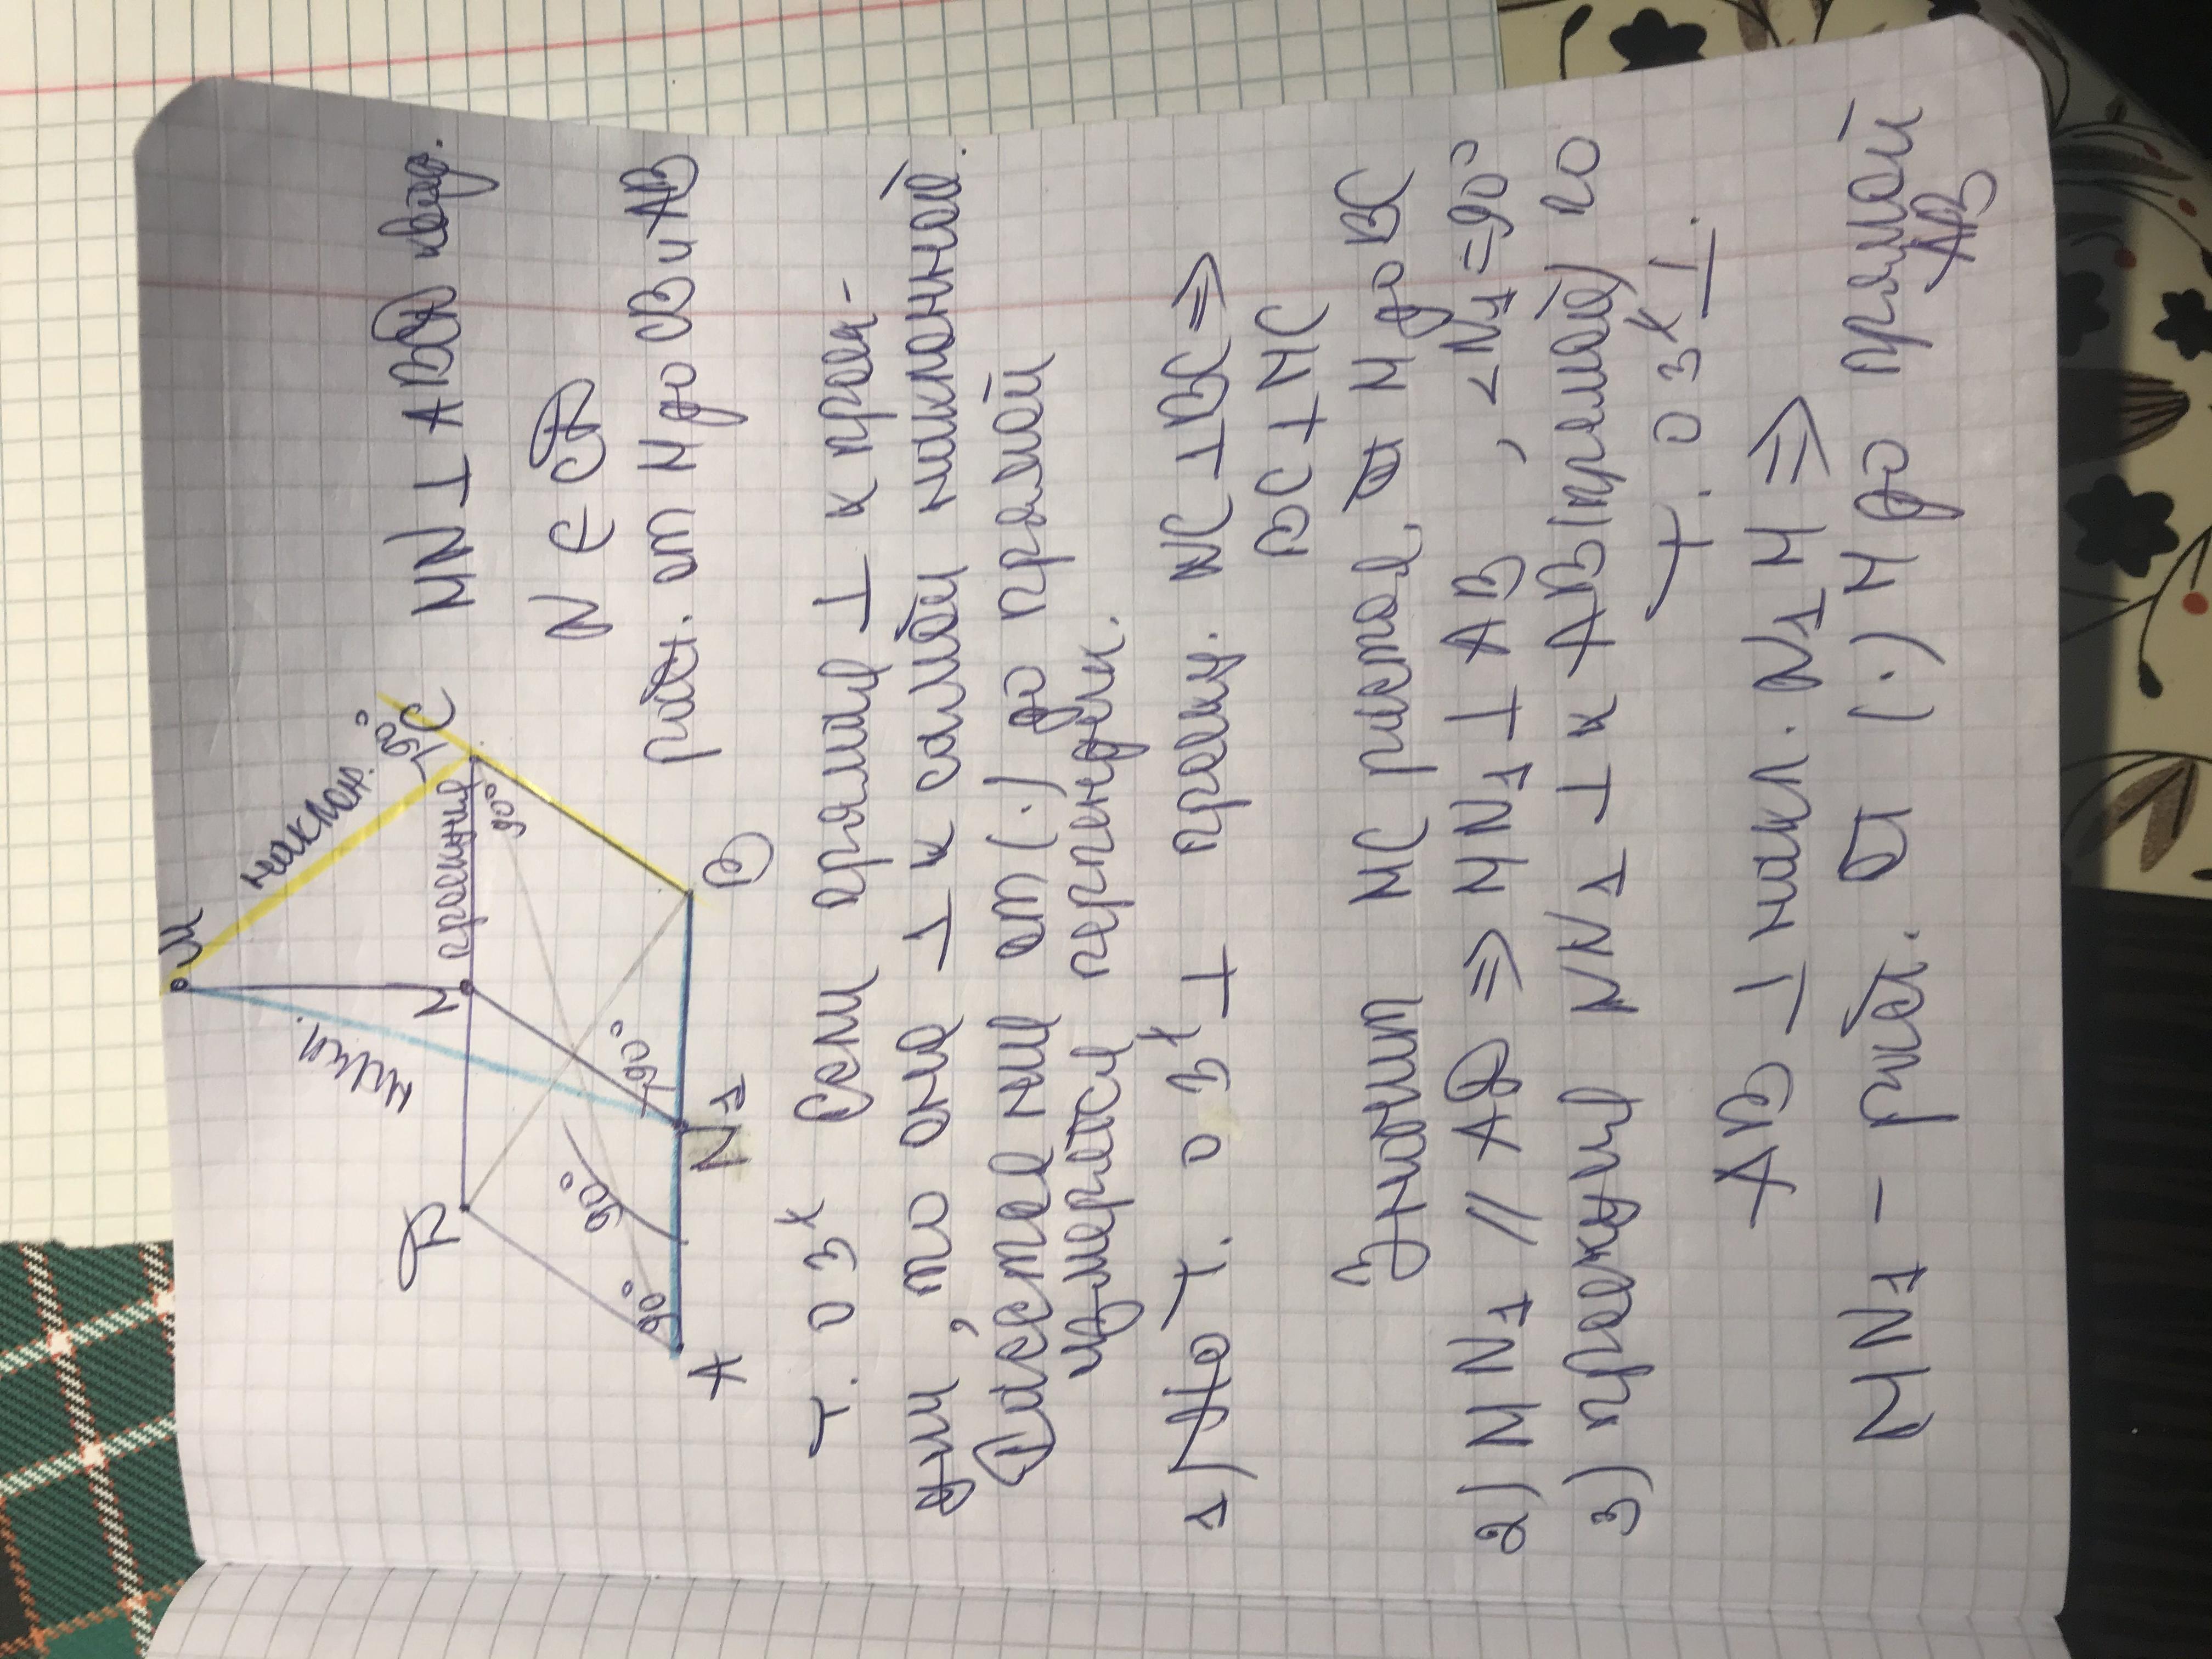 M
наклон.
накл.
90°
D
N
проекция
C
90°
90°
90°
90°
A
N1
B
MN ⊥ ABCD квад.
N ∈ CD
раст. от M до CB и AB
Т. о 3х Если прямая ⊥ к проек-
ции, то она ⊥ к самой наклонной.
Расстояние от (·) до прямой
измеряется перпендик.
1) По т. о 3х ⊥ прям. NC ⊥ BC ⇒
BC ⊥ MC
Значит MC расст. от M до BC
2) NN1 // AD ⇒ NN1 ⊥ AB , <N1=90°
3) проекция NN1 ⊥ к AB (прямой) по
т. о 3х ⊥.
AB ⊥ накл. N1M ⇒
MN1 – раст. от (·) M до прямой
AB